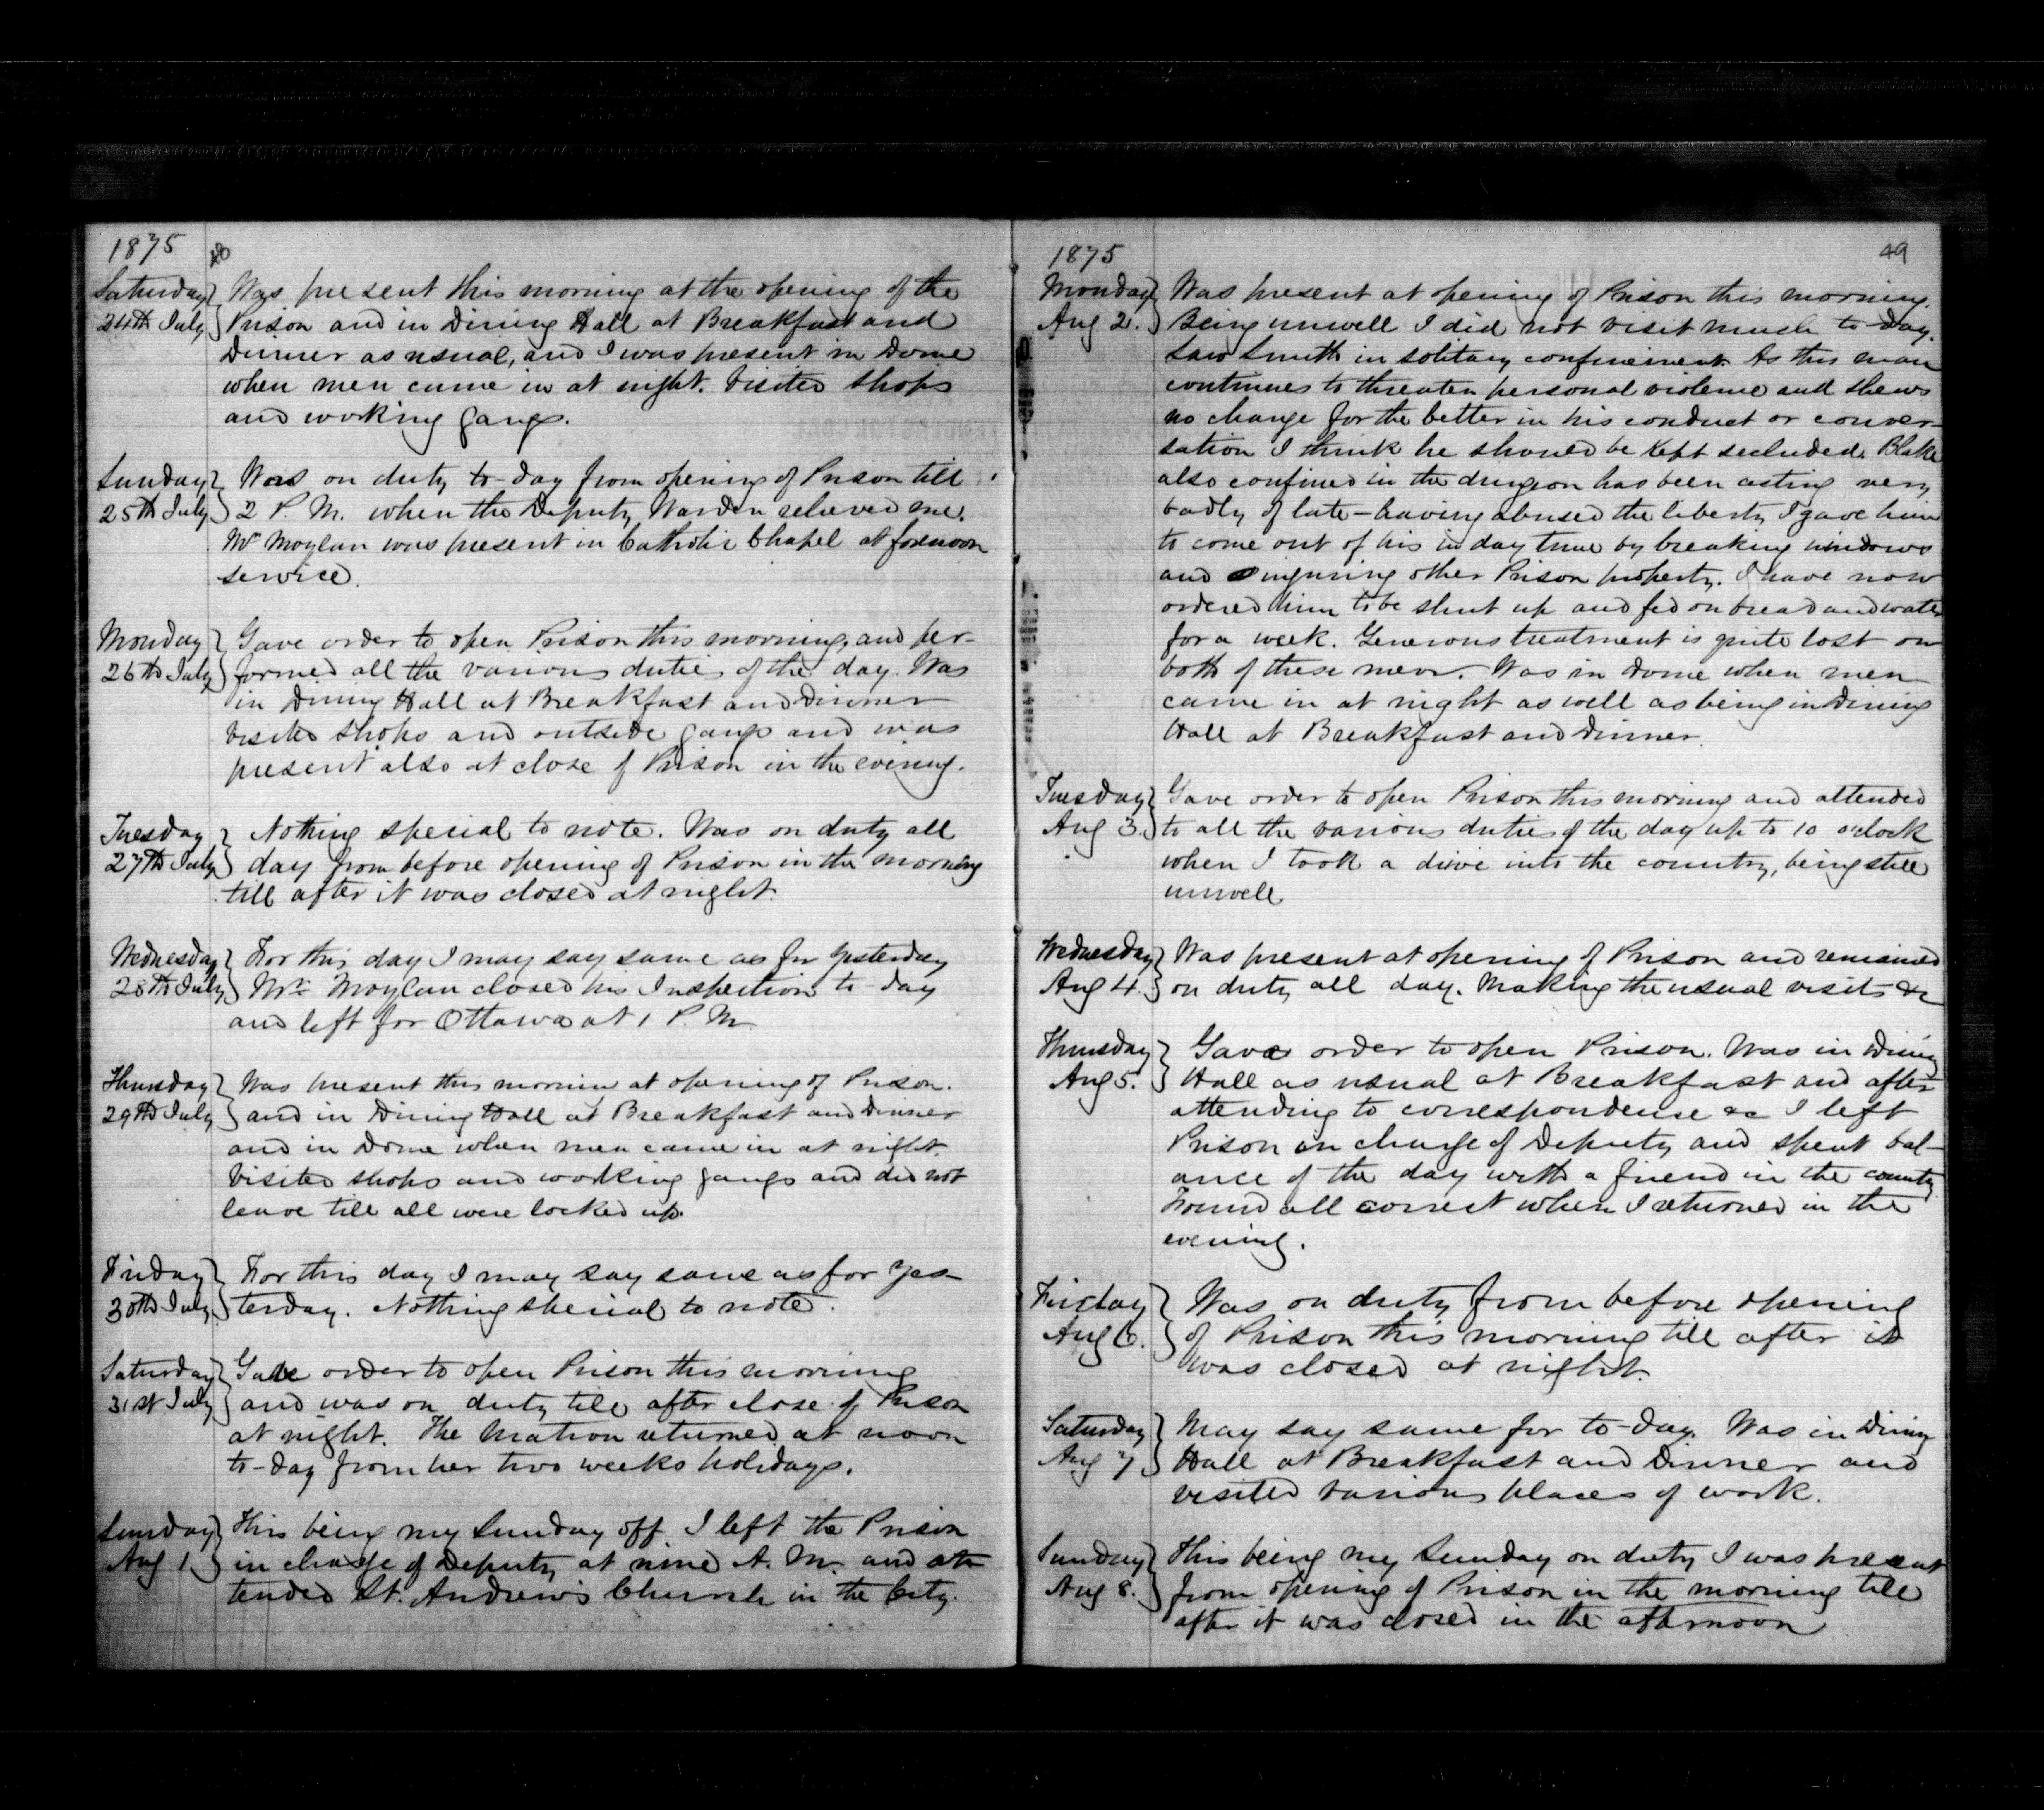 1875
48
Saturday 24th July } Was present this morning at the opening of the
Prison and in Dining Hall at Breakfast and
Dinner as usual, and I was present in Dome
when men came in at night. Visited shops
and working gangs.
Sunday 25th July } Was on duty to-day from opening of Prison till
2 P. M. when the Deputy Warden relieved me.
Mr Moylan was present in Catholic Chapel at forenoon
service.
Monday 26th July } Gave order to open Prison this morning, and per-
formed all the various duties of the day. Was
in Dining Hall at Breakfast and Dinner
visited shops and outside gangs and was
present also at close of Prison in the evening.
Tuesday 27th July } Nothing special to note. Was on duty all
day from before opening of Prison in the morning
till after it was closed at night.
Wednesday 28th July } For this day I may say same as for yesterday
Mr. Moylan closed his Inspection to-day
and left for Ottawa at 1 P. M.
Thursday 29th July } Was present this mornin at opening of Prison.
and in Dining Hall at Breakfast and Dinner
and in Dome when men came in at night.
Visited shops and working gangs and did not
leave till all were locked up.
Friday 30th July } For this day I may say same as for yes-
terday. Nothing special to note.
Saturday 31st July } Gave order to open Prison this morning
and was on duty till after close of Prison
at night. The Matron returned at noon
to-day from her two weeks holidays.
Sunday Aug 1 } This being my Sunday off I left the Prison
in charge of Deputy at nine A. M. and at-
tended St. Andrew's Church in the City.
1875
49
Monday Aug 2. } Was present at opening of Prison this morning.
Being unwell I did not visit much to-day.
Saw Smith in solitary confinement. As this man
continues to threaten personal violence and shews
no change for the better in his conduct or conver-
sation I think he should be kept secluded. Blake
also confined in the dungeon has been acting very
badly of late - having abused the liberty I gave him
to come out of his in day time by breaking windows
and injuring other Prison property. I have now
ordered him to be shut up and fed on bread and water
for a week. Generous treatment is quite lost on
both of these men. Was in Dome when men
came in at night as well as being in Dining
Hall at Breakfast and Dinner.
Tuesday Aug 3. } Gave order to open Prison this morning and attended
to all the various duties of the day up to 10 o'clock
when I took a drive into the country, being still
unwell
Wednesday Aug 4. } Was present at opening of Prison and remained
on duty all day. Making the usual visits &c
Thursday Aug 5. } Gave order to open Prison. Was in Dining
Hall as usual at Breakfast and after
attending to correspondense &c I left
Prison in charge of Deputy and spent bal-
ance of the day with a friend in the county
Found all correct when I returned in the
evening.
Friday Aug 6. } Was on duty from before opening
of Prison this morning till after it
was closed at night.
Saturday Aug 7 } May say same for to-day. Was in Dining
Hall at Breakfast and Dinner and
visited various places of work.
Sunday Aug 8. } This being my Sunday on duty I was present
from opening of Prison in the morning till
after it was closed in the afternoon